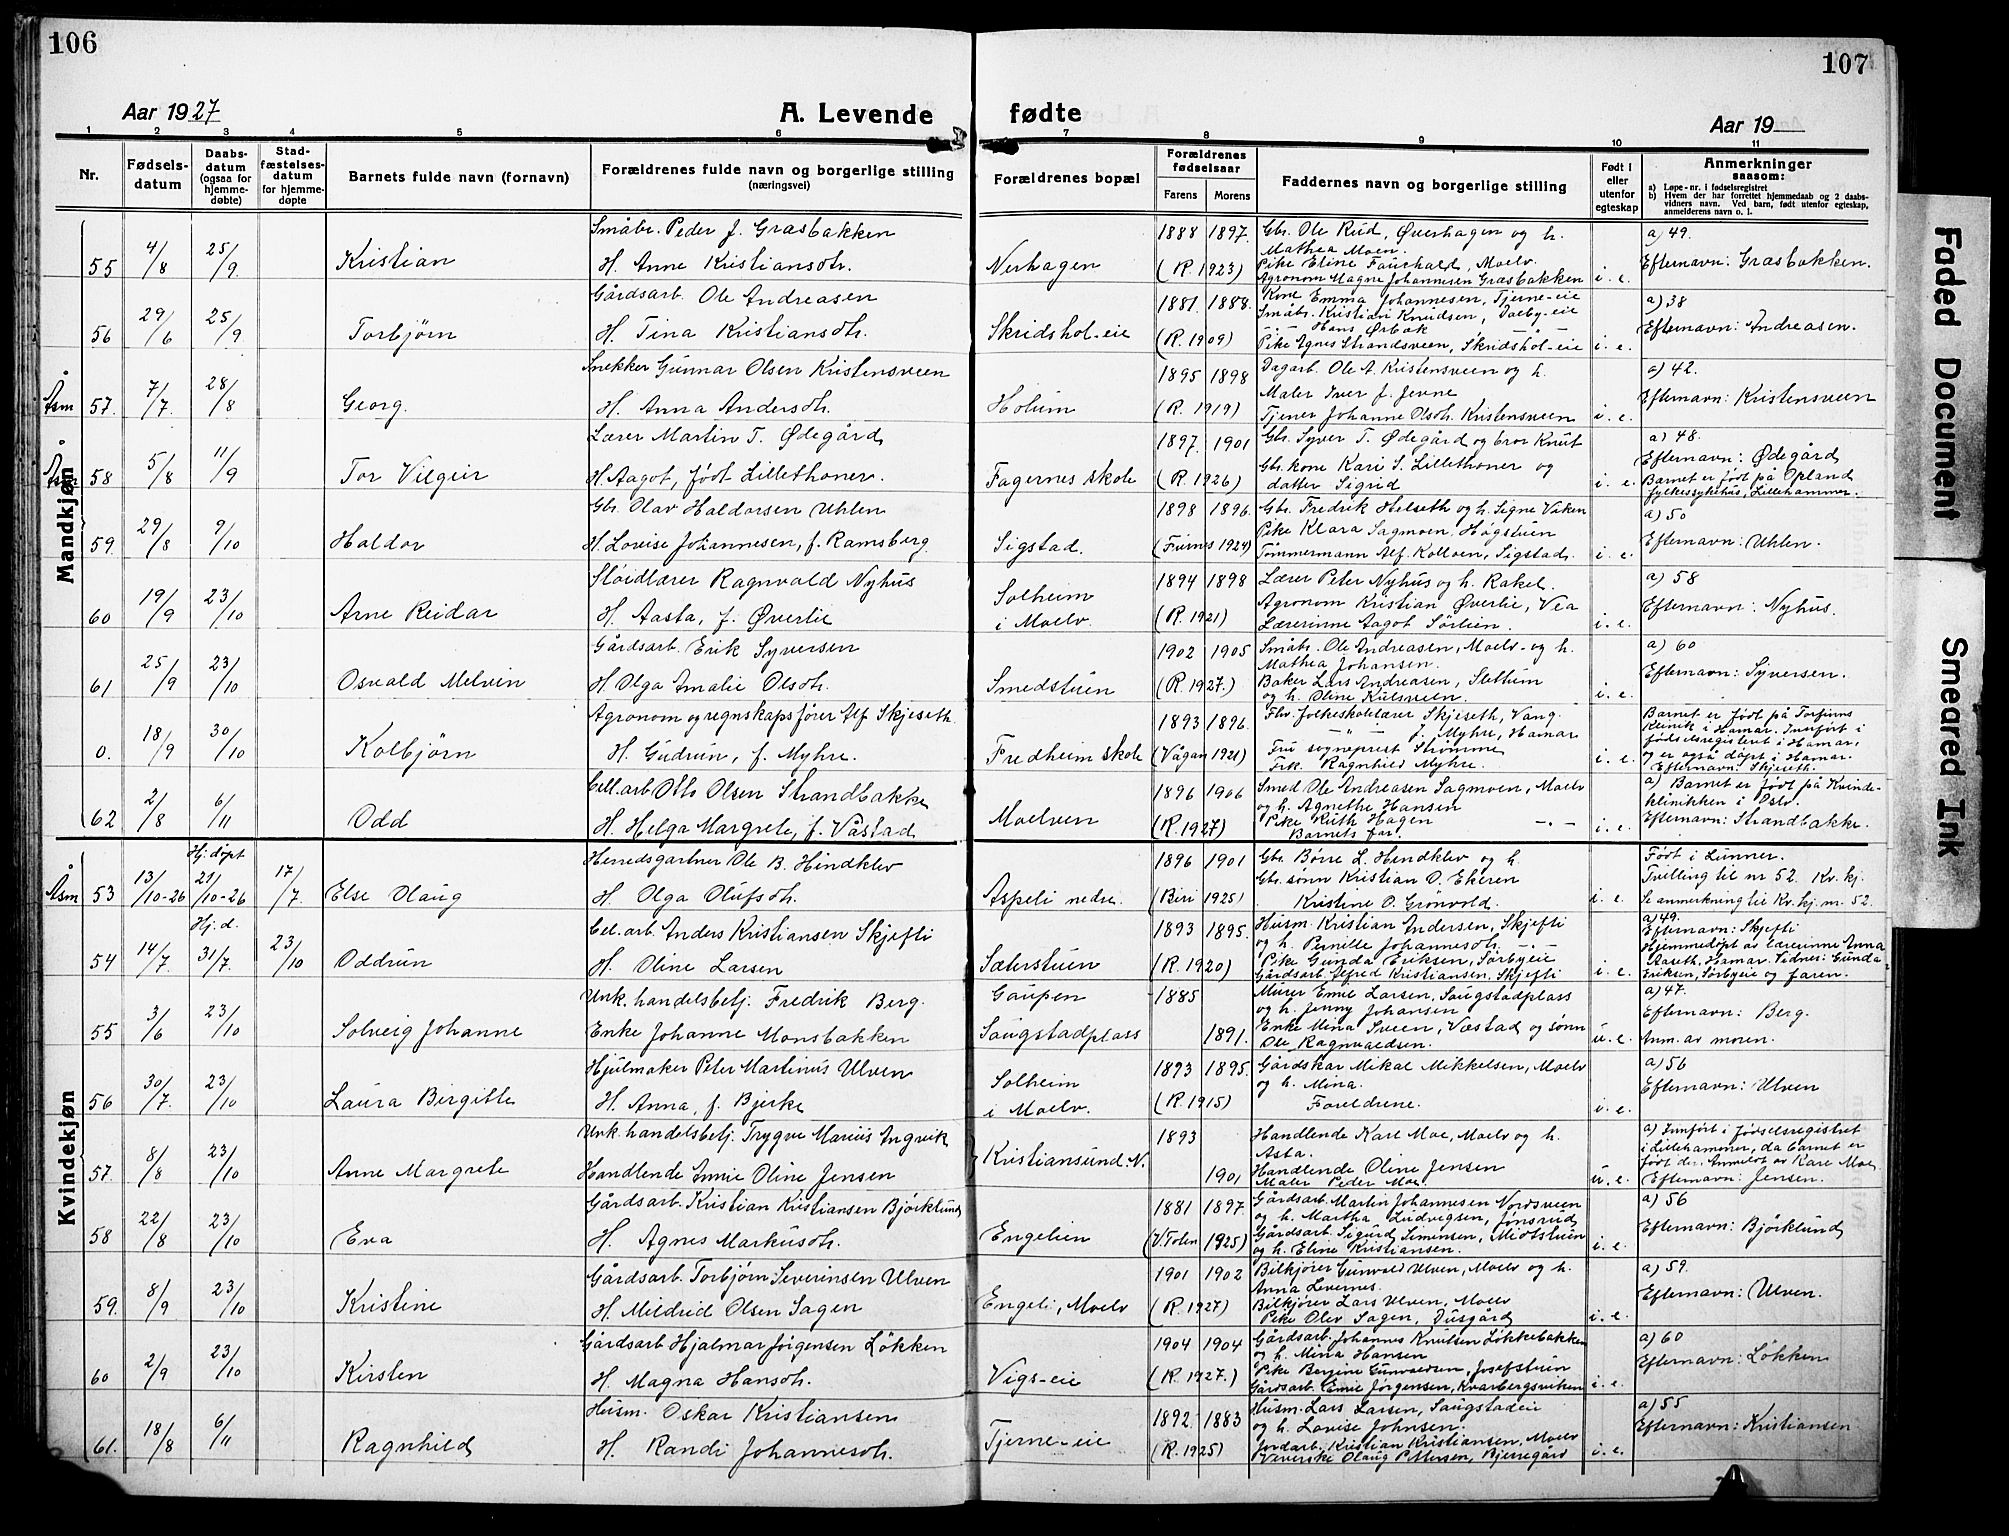 106
107
Aar 1927
A. Levende fødte
Aar 19
1 2 3 4 5 6 7 8 9 10 11
Nr.
Fødsels-
datum
Daabs-
datum
(ogsaa for
hjemme-
døbte)
Stad-
fæstelses-
datum
for hjemme-
døpte
Barnets fulde navn (fornavn)
Forældrenes fulde navn og borgerlige stilling
(næringsvei)
Forældrenes bopæl
Forældrenes
fødselsaar
Farens Morens
Faddernes navn og borgerlige stilling
Født i
eller
utenfor
egteskap
Anmerkninger
saasom:
a) Løpe-nr. i fødselsregistret
b) Hvem der har forrettet hjemmedaab og 2 daabs-
vidners navn. Ved barn, født utenfor egteskap,
anmelderens navn o. l.
Mandkjøn
Småbr. Peder J. Græsbakken 1888 1897. Gbr. Ole Rud, Øverhagen og h. a) 49.
Mathea Moen.
55 4/8 25/9 Kristian H. Anne Kristiansdtr. Nerhagen (R. 1923) Pike Eline Fauchald, Moelv. i. e. Efternavn: Græsbakken.
Agronom Magne Johannesen Græsbakken
Gårdsarb. Ole Andreasen 1881. 1888. Kone Emma Johannesen, Tjerne-eie a) 38
Småbr. Kristian Knudsen, Dæby-eie
56 29/6 25/9 Torbjørn H. Tina Kristiansdtr. Skridshol-eie (R. 1909) -.- Hans Ørbæk i. e. Efternavn: Andreasen.
Pike Agnes Strandsveen, Skridshol-eie
Snekker Gunnar Olsen Kristensveen 1895 1898 Dagarb. Ole A. Kristensveen og h. a) 42.
Maler Iver J. Jevne
Åsm 57. 7/7. 28/8 Georg. H. Anna Andersdtr. Holum (R. 1919) Tjener Johanne Olsdtr. Kristensveen i. e. Efternavn: Kristensveen
Lærer Martin T. Ødegård 1897. 1901 Gbr. Syver T. Ødegård og bror Knut a) 48.
Gbr. kone Kari S. Lillethoner og Efternavn: Ødegård
Åsm 58 5/8 11/9 Tor Vilgeir H. Aagot, født Lillethoner. Fagernes skole (R. 1926) datter Sigrid i. e. Barnet er født på Opland
fylkessykehus, Lillehammer.
Gbr. Olav Haldorsen Uhlen 1898 1896. Gbr. Fredrik Helseth og h. Signe Viken a) 50
Pike Klara Sagmoen, Høgstuen
59. 29/8 9/10 Haldor H. Lovise Johannesen, f. Ramsberg. Sigstad. (Furnes 1924) Tømmermann Alf Kolloen, Sigstad. i. e. Efternavn: Uhlen.
Sløidlærer Ragnvald Nyhus 1894 1898 Lærer Peter Nyhus og h. Rakel. a) 58
Agronom Kristian Øverlie, Vea
60 19/9 23/10 Arne Reidar H. Aasta, f. Øverlie Solheim i Moelv. (R. 1921) Lærerinne Aagot Sørlien. i. e. Efternavn: Nyhus.
Gårdsarb. Erik Syversen 1902 1905 Småbr. Ole Andreasen, Moelv. og h. a) 60
Mathea Johansen.
61 25/9 23/10 Osvald Melvin H. Olga Amalie Olsdtr. Smedstuen (R. 1927.) Baker Lars Andreasen, Slethum i. e. Efternavn: Syversen.
og h. Oline Kulsveen.
Agronom og regnskapsfører Alf Skjeseth. 1893 1896. Fhv. folkeskolelærer Skjeseth, Vang. Barnet er født på Torfinns
-"- f. Myhre, Hamar Klinik i Hamar. Innført i
0. 18/9 30/10 Kolbjørn H. Gudrun, f. Myhre. Fredheim skole (Vågan 1921) Fru sogneprest Strømme i. e. fødselsregistret i Hamar,
Frk. Ragnhild Myhre. og er også døpt i Hamar.
Efternavn: Skjeseth.
Cell.arb Otto Olsen Strandbakke 1896 1906 Smed Ole Andreasen Sagmoen, Moelv a) Barnet er født på Kvinde-
og h. Agnethe Hansen klinikken i Oslo.
62 2/8 6/11 Odd H. Helga Margrete, f. Våstad Moelven (R. 1927) Pike Ruth Hagen -.- i. e. Efternavn: Strandbakke.
Barnets far.
Kvindekjøn
Hj. døpt Herredsgartner Ole B. Hindklev 1896 1901 Gbr. Børre L. Hindklev og h. Født i Lunner.
Gbr. sønn Kristian O. Ekeren Tvilling til nr 52. Kv. kj.
Åsm 53 13/10-26 21/10-26 17/7. Else Olaug H. Olga Olufsdtr. Aspeli nedre. (Biri 1925) Kristine O. Grønvold. i. e. Se anmerkning til Kv. kj. nr. 52.
Hj. d. Cel. arb. Anders Kristiansen Skjefti 1893 1895. Husm. Kristian Andersen, Skjefti a) 49.
og h. Pernille Johannesdtr. -.- Efternavn: Skjefti
54 14/7. 31/7. 23/10 Oddrun H. Oline Larsen Sæterstuen (R. 1920) Pike Gunda Eriksen, Sørbyeie i. e. Hjemmedøpt av lærerinne Anna
Gårdsarb. Alfred Kristiansen, Skjefti Aaseth, Hamar. Vidnes: Gunda
Eriksen, Sørbyeie og faren.
Unk. handelsbetj. Fredrik Berg. Gaupen 1885 Murer Emil Larsen, Saugstadplass a) 47.
og h. Jenny Johansen Efternavn: Berg.
55 3/6 23/10 Solveig Johanne Enke Johanne Monsbakken Saugstadplass 1891. Enke Mina Sveen, Væstad og sønn u. e. Anm. av moren.
Ole Ragnvaldsen.
Hjulmaker Peter Martinus Ulven 1893 1895. Gårdskar Mikal Mikkelsen, Moelv a) 56
og h. Mina. Efternavn: Ulven
56 30/7. 23/10 Laura Birgitte H. Anna, f. Bjerke Solheim i Moelv. (R. 1915) Foreldrene. i. e.
Unk. handelsbetj. Trygve Marius Ingvik 1893 Handlende Kare Moe, Moelv og h. a) Innført i fødselsregistret
Asta. i Lillehammer, da barnet er
57. 8/8 23/10 Anne Margrete Handlende Annie Oline Jensen Kristiansund N. 1901 Handlende Oline Jensen u. e. født der. Anmeldt av Kare Moe
Maler Peder Moe. Efternavn: Jensen.
Gårdsarb. Kristian Kristiansen Bjørklund 1881 1897. Gårdsarb. Martin Johannesen Nordsveen a) 56
og h. Martha Ludvigsen, Jønsrud
58 22/8 23/10 Eva H. Agnes Markusdtr. Engelien (V. Toten 1925) Gårdsarb. Sigurd Simensen, Midtstuen i. e. Efternavn: Bjørklund
og h. Eline Kristiansen.
Gårdsarb. Torbjørn Severinsen Ulven 1901 1902 Bilkjører Gunvald Ulven, Moelv og h. a) 59.
Anna Levernes.
59. 8/9 23/10 Kristine H. Mildrid Olsen Sagen Engeli, Moelv (R. 1927) Bilkjører Lars Ulven, Moelv i. e. Efternavn: Ulven.
Pike Olev Sagen, Dusgård
Gårdsarb Hjalmar Jørgensen Løkken 1904 1904 Gårdsarb. Johannes Knutsen Løkkebakken a) 60
og h. Mina Hansen
60 2/9 23/10 Kirsten H. Magna Hansdtr. Vigs-eie (R. 1927.) Pike Bergine Gunvaldsen, Josefstuen i. e. Efternavn: Løkken
Gårdsarb. Emil Jørgensen, Kvarbergsviken
Husm. Oskar Kristiansen 1892 1883 Husm. Lars Larsen, Saugstadeie a) 55
og h. Lovise Johnsen.
61. 18/8 6/11 Ragnhild H. Randi Johannesdtr. Tjerne-eie (R. 1925) Jordarb. Kristian Kristiansen, Moelv i. e. Efternavn: Kristiansen
Veverske Olaug Pettersen, Bjerregård
Faded Document
Smeared Ink